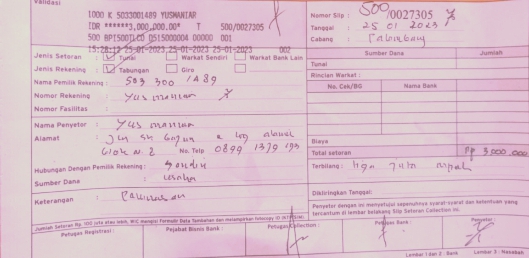 Validasi
1000 K 5033001489 YUSMANIAR
IDR *******3,000,000.00* T 500/0027305
500 BPI500TLCO DS15004 00000 001
15:28:12 25-01-2023 25-01-2023 25-01-2023 002
Nomor Slip : 500/0027305
Tanggal : 25 01 2023
Cabang :
Jenis Setoran : Tunai Warkat Sendiri Warkat Bank Lain
Jenis Rekening : Tabungan Giro
Nama Pemilik Rekening : 503 300 1489
Nomor Rekening : Yusmaniar
Nomor Fasilitas :
Sumber Dana Jumlah
Tunai
Rincian Warkat :
No. Cek/BG Nama Bank
Nama Penyetor : Yusmaniar
Alamat :
No. Telp 0899 1379 193
Hubungan Dengan Pemilik Rekening : Sendiri
Sumber Dana : usaha
Keterangan :
Biaya
Total setoran Rp 3 000,000
Terbilang : tiga juta rupiah
Dikliringkan Tanggal:
Penyetor dengan ini menyetujui sepenuhnya syarat-syarat dan ketentuan yang
tercantum di lembar belakang Slip Setoran Collection ini.
Jumlah Setoran Rp. 100 juta atau lebih, WIC mengisi Formulir Data Tambahan dan melampirkan fotocopy ID
Petugas Registrasi : Pejabat Bisnis Bank : Petugas Collection : Petugas Bank : Penyetor :
Lembar 1 dan 2 : Bank Lembar 3 : Nasabah